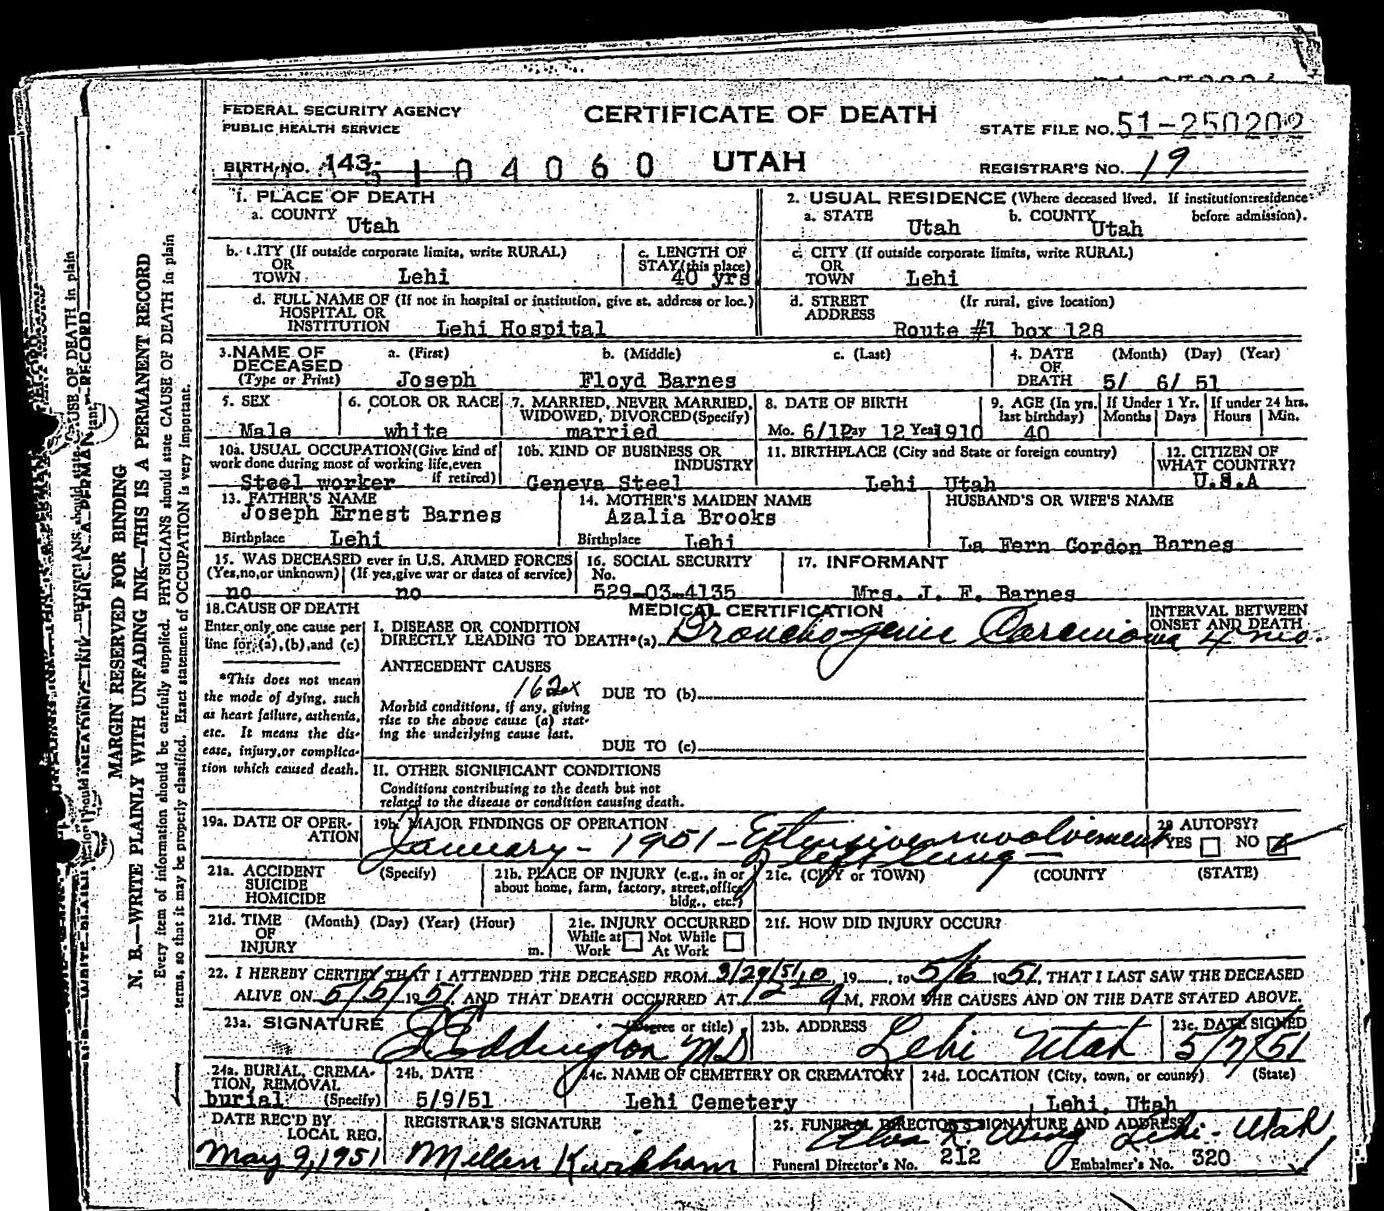 FEDERAL SECURITY AGENCY
PUBLIC HEALTH SERVICE
CERTIFICATE OF DEATH
STATE FILE NO. 51-250202
BIRTH NO. 143-
104060
UTAH
REGISTRAR'S NO. 19
1. PLACE OF DEATH
a. COUNTY Utah
2. USUAL RESIDENCE (Where deceased lived. If institution:residence before admission).
a. STATE Utah b. COUNTY Utah
b. CITY (If outside corporate limits, write RURAL) OR TOWN Lehi
c. LENGTH OF STAY (this place) 40 yrs
c. CITY (If outside corporate limits, write RURAL) OR TOWN Lehi
d. FULL NAME OF (If not in hospital or institution, give st. address or loc.) HOSPITAL OR INSTITUTION Lehi Hospital
d. STREET ADDRESS (If rural, give location) Route #1 box 128
3. NAME OF DECEASED (Type or Print) a. (First) Joseph b. (Middle) Floyd c. (Last) Barnes
4. DATE OF DEATH (Month) (Day) (Year) 5/ 6/ 51
5. SEX Male
6. COLOR OR RACE white
7. MARRIED, NEVER MARRIED, WIDOWED, DIVORCED (Specify) married
8. DATE OF BIRTH Mo. 6/12 Day 12 Year 1910
9. AGE (In yrs. last birthday) 40
If Under 1 Yr. Months Days
If under 24 hrs. Hours Min.
10a. USUAL OCCUPATION (Give kind of work done during most of working life, even if retired) Steel worker
10b. KIND OF BUSINESS OR INDUSTRY Geneva Steel
11. BIRTHPLACE (City and State or foreign country) Lehi Utah
12. CITIZEN OF WHAT COUNTRY? U.S.A
13. FATHER'S NAME Joseph Ernest Barnes
Birthplace Lehi
14. MOTHER'S MAIDEN NAME Azalia Brooks
Birthplace Lehi
HUSBAND'S OR WIFE'S NAME La Fern Gordon Barnes
15. WAS DECEASED ever in U.S. ARMED FORCES (Yes,no,or unknown) (If yes,give war or dates of service) no no
16. SOCIAL SECURITY No. 529-03-4135
17. INFORMANT Mrs. J. F. Barnes
18. CAUSE OF DEATH
Enter only one cause per line for (a), (b), and (c)
*This does not mean the mode of dying, such as heart failure, asthenia, etc. It means the disease, injury, or complication which caused death.
MEDICAL CERTIFICATION
INTERVAL BETWEEN ONSET AND DEATH
I. DISEASE OR CONDITION DIRECTLY LEADING TO DEATH*(a) Broncho-genic Carcinoma 4 mo.
ANTECEDENT CAUSES
162x
DUE TO (b)
Morbid conditions, if any, giving rise to the above cause (a) stating the underlying cause last.
DUE TO (c)
II. OTHER SIGNIFICANT CONDITIONS
Conditions contributing to the death but not related to the disease or condition causing death.
19a. DATE OF OPERATION
19b. MAJOR FINDINGS OF OPERATION
January - 1951 - Extensive involvement
of left lung
20 AUTOPSY? YES NO
21a. ACCIDENT SUICIDE HOMICIDE (Specify)
21b. PLACE OF INJURY (e.g., in or about home, farm, factory, street, office bldg., etc.)
21c. (CITY or TOWN) (COUNTY) (STATE)
21d. TIME OF INJURY (Month) (Day) (Year) (Hour) m.
21e. INJURY OCCURRED While at Work Not While At Work
21f. HOW DID INJURY OCCUR?
22. I HEREBY CERTIFY THAT I ATTENDED THE DECEASED FROM 3/29/51, 19 , to 5/6 1951, THAT I LAST SAW THE DECEASED
ALIVE ON 5/5/1951, AND THAT DEATH OCCURRED AT 12 A M, FROM THE CAUSES AND ON THE DATE STATED ABOVE.
23a. SIGNATURE Eddington MD (Degree or title)
23b. ADDRESS Lehi Utah
23c. DATE SIGNED 5/7/51
24a. BURIAL, CREMATION, REMOVAL (Specify) burial
24b. DATE 5/9/51
24c. NAME OF CEMETERY OR CREMATORY Lehi Cemetery
24d. LOCATION (City, town, or county) (State) Lehi, Utah
DATE REC'D BY LOCAL REG. May 9, 1951
REGISTRAR'S SIGNATURE Mellen Kirkham
25. FUNERAL DIRECTOR'S SIGNATURE AND ADDRESS Elva R. Wing Lehi - Utah
Funeral Director's No. 212
Embalmer's No. 320
MARGIN RESERVED FOR BINDING
N. B.—WRITE PLAINLY WITH UNFADING INK—THIS IS A PERMANENT RECORD
Every item of information should be carefully supplied. PHYSICIANS should state CAUSE OF DEATH in plain
terms, so that it may be properly classified. Exact statement of OCCUPATION is very important.